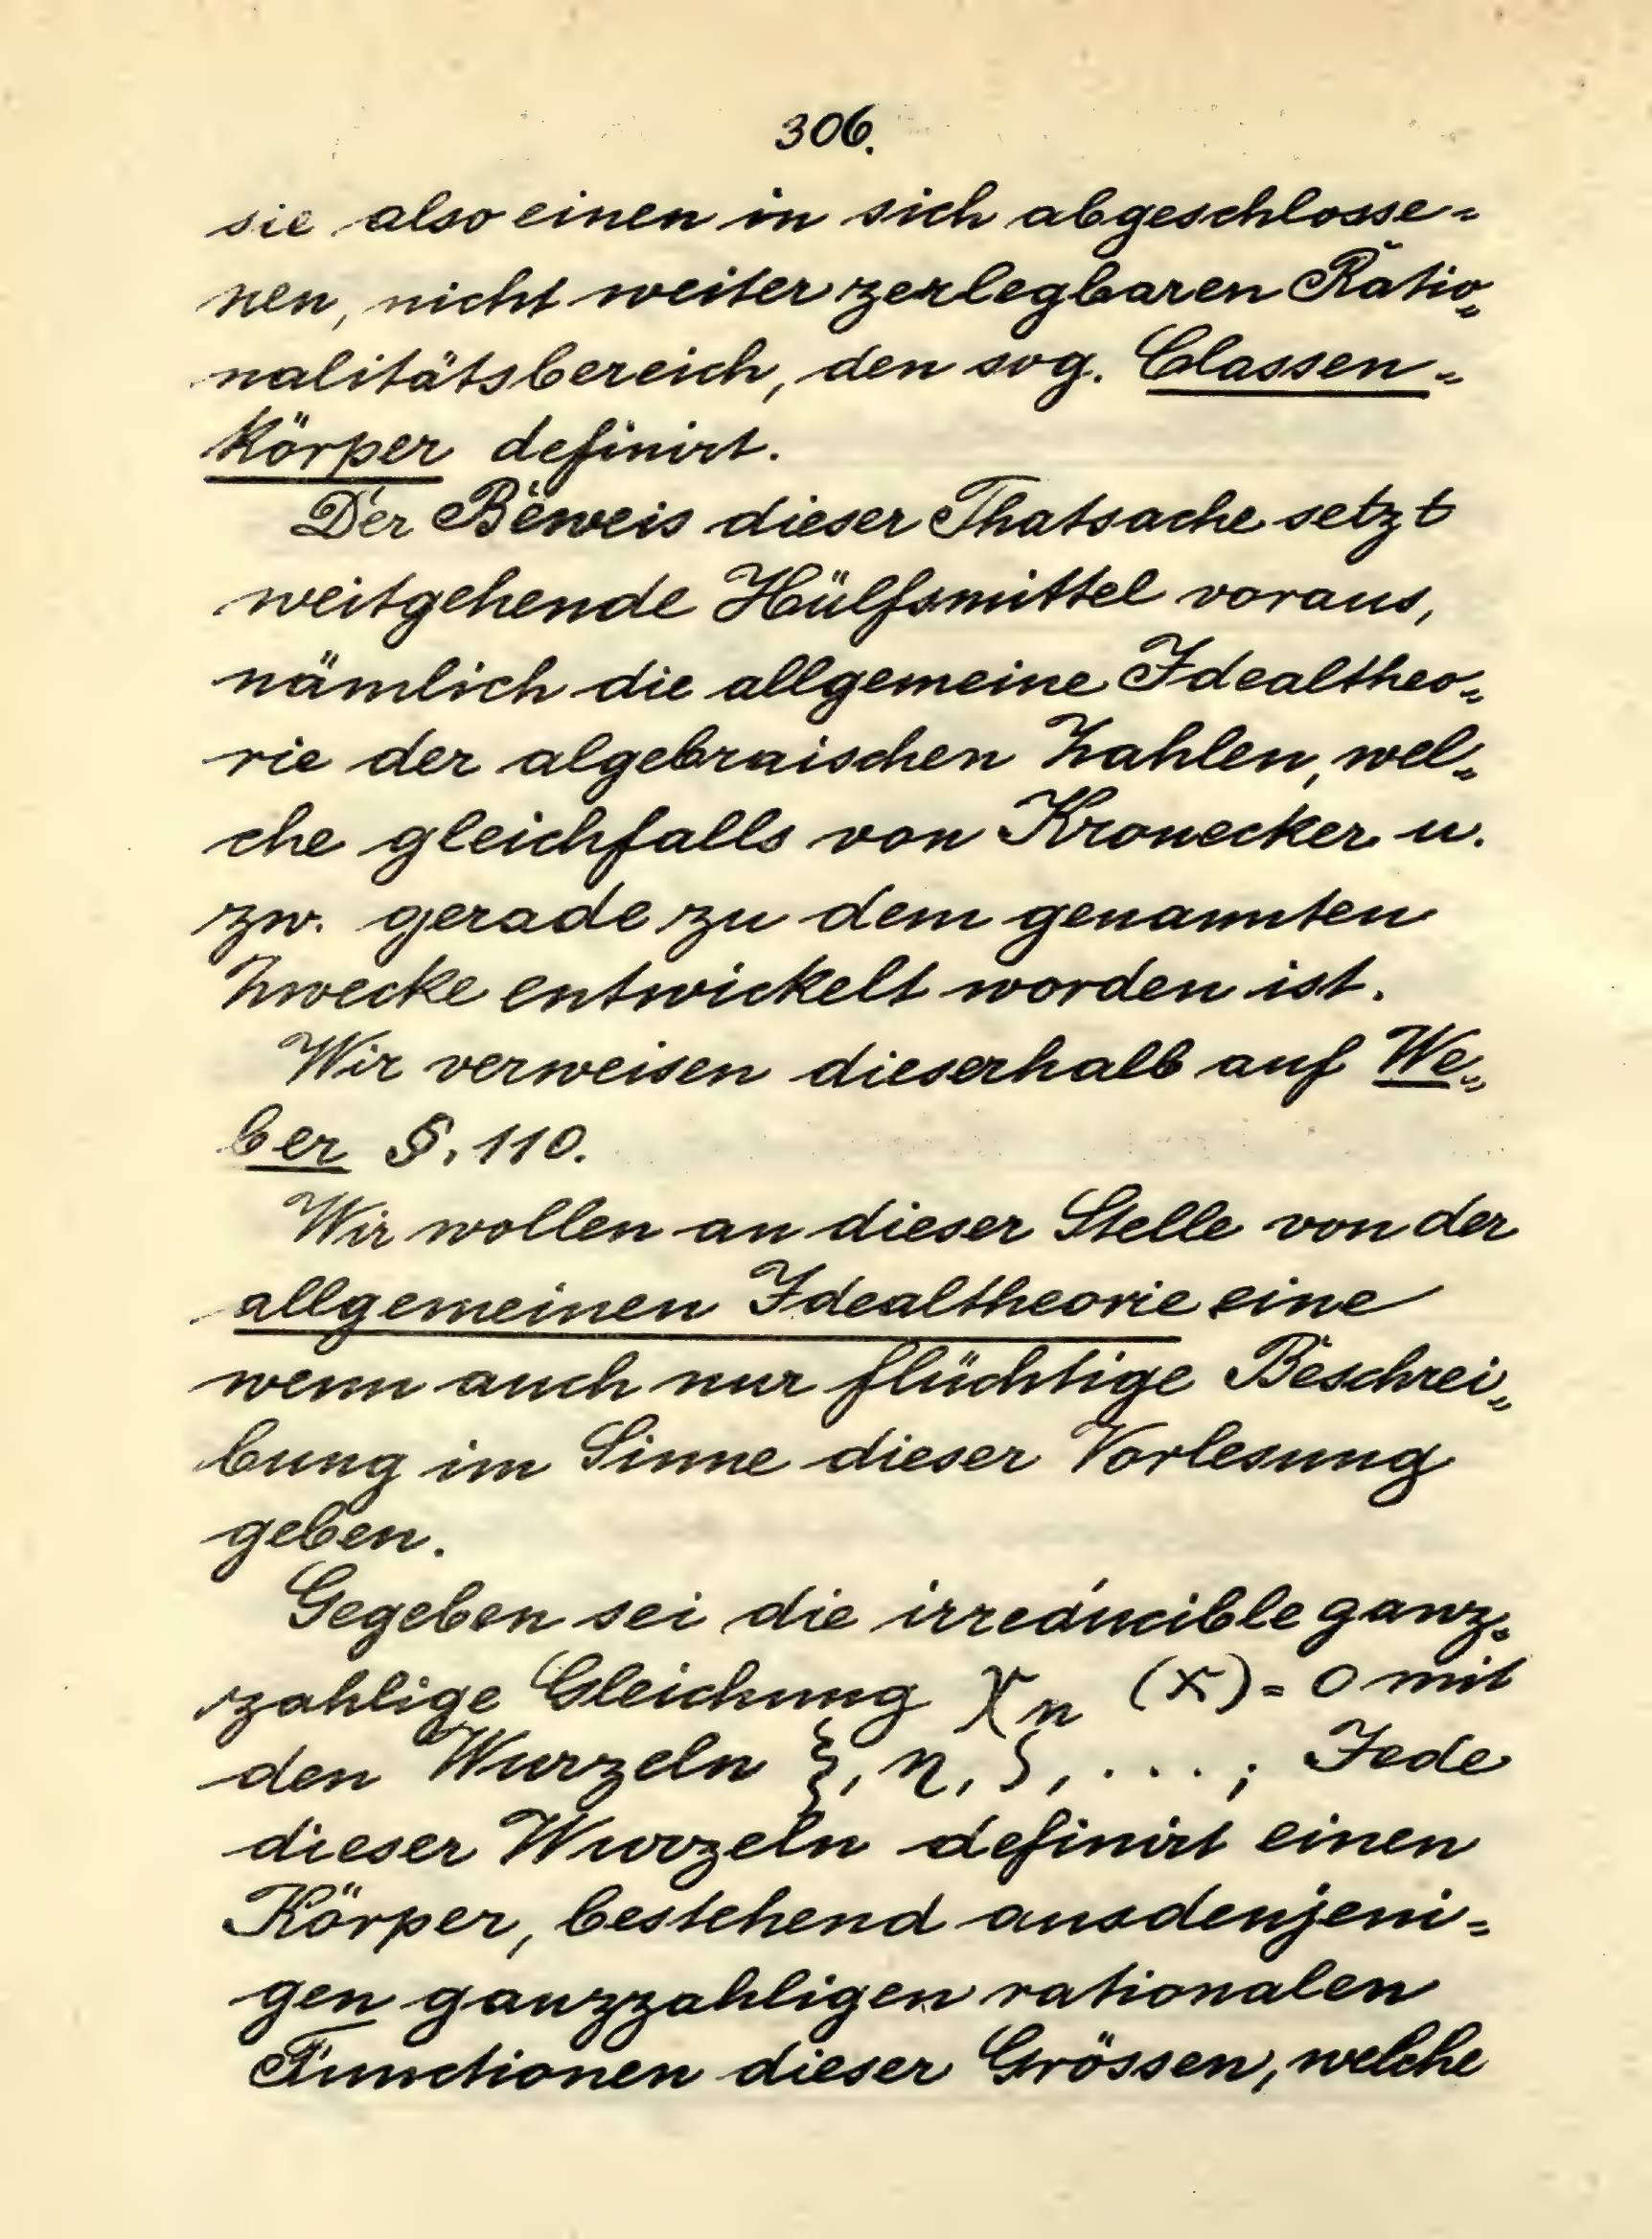 306.
sie also einen in sich abgeschlosse=
nen, nicht weiter zerlegbaren Ratio=
nalitätsbereich, den sog. Classen=
körper definirt.
Der Beweis dieser Thatsache setzt
weitgehende Hülfsmittel voraus,
nämlich die allgemeine Idealtheo=
rie der algebraischen Zahlen, wel=
che gleichfalls von Kronecker u.
zw. gerade zu dem genannten
Zwecke entwickelt worden ist.
Wir verweisen dieserhalb auf We=
ber §. 110.
Wir wollen an dieser Stelle von der
allgemeinen Idealtheorie eine
wenn auch nur flüchtige Beschrei=
bung im Sinne dieser Vorlesung
geben.
Gegeben sei die irreducible ganz=
zahlige Gleichung χₙ (x) = 0 mit
den Wurzeln ξ, η, ζ, . . . ; Jede
dieser Wurzeln definirt einen
Körper, bestehend aus denjeni=
gen ganzzahligen rationalen
Functionen dieser Grössen, welche